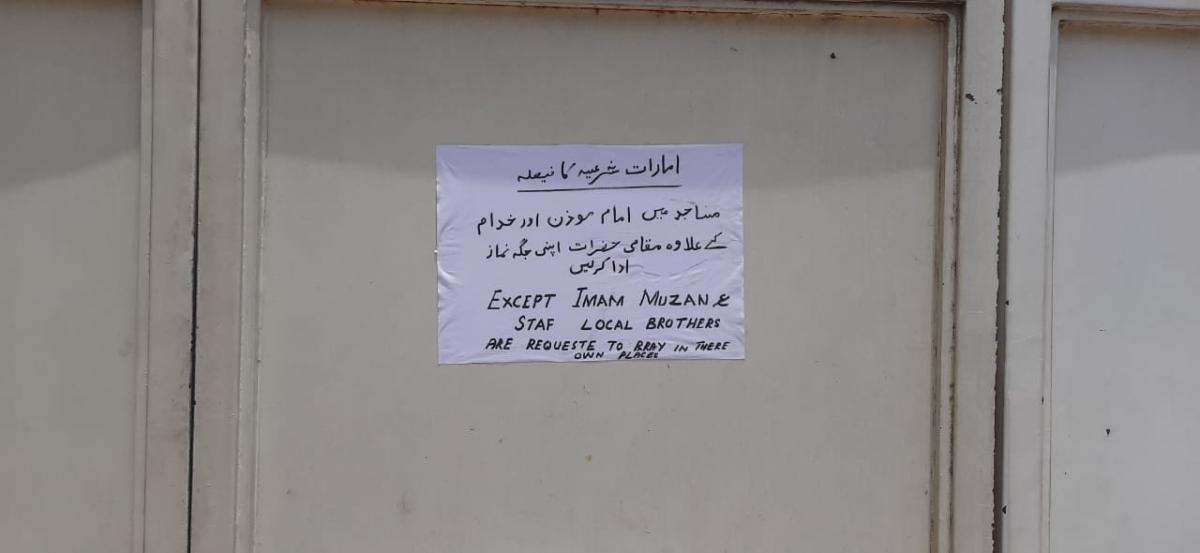 امارات شرعیہ کا فیصلہ
مساجد میں امام موذن اور خدام
کے علاوہ مقامی حضرات اپنی جگہ نماز
ادا کرلیں
EXCEPT IMAM MUZAN &
STAF LOCAL BROTHERS
ARE REQUESTE TO PRAY IN THERE
OWN PLACES